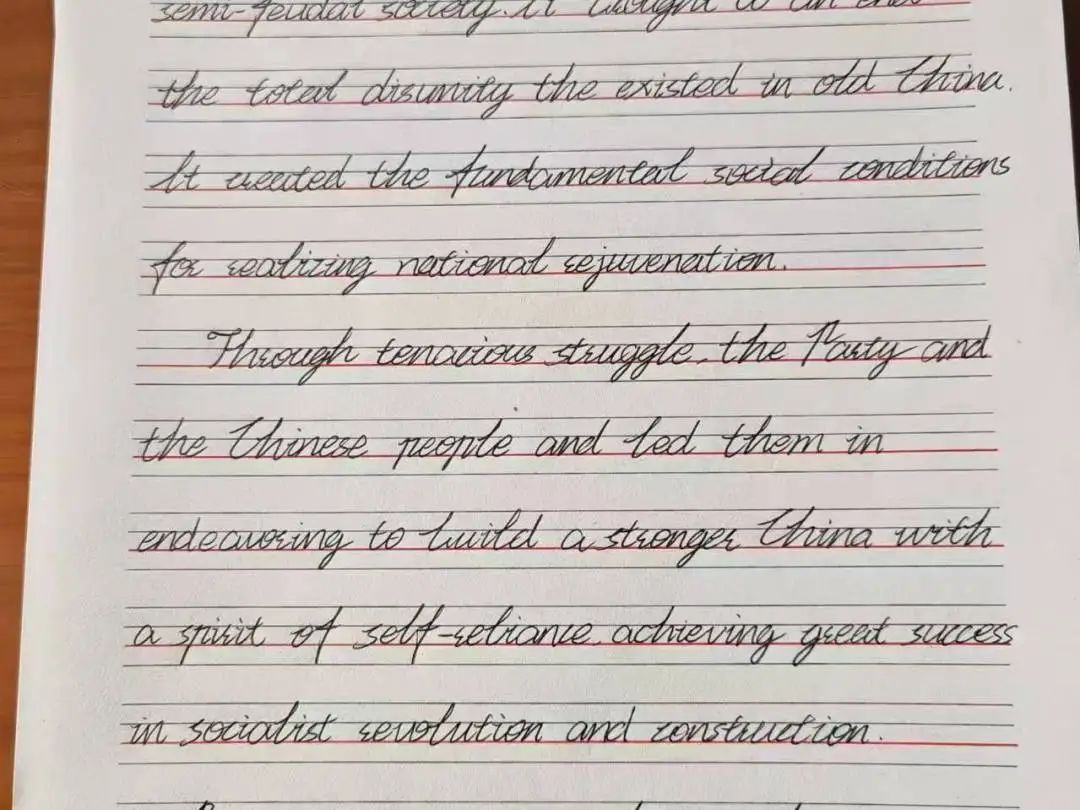 semi-feudal society. it brought to an end
the total disunity the existed in old China.
It created the fundamental social conditions
for realizing national rejuvenation.
Through tenacious struggle, the Party and
the Chinese people and led them in
endeavoring to build a stronger China with
a spirit of self-reliance, achieving great success
in socialist revolution and construction.